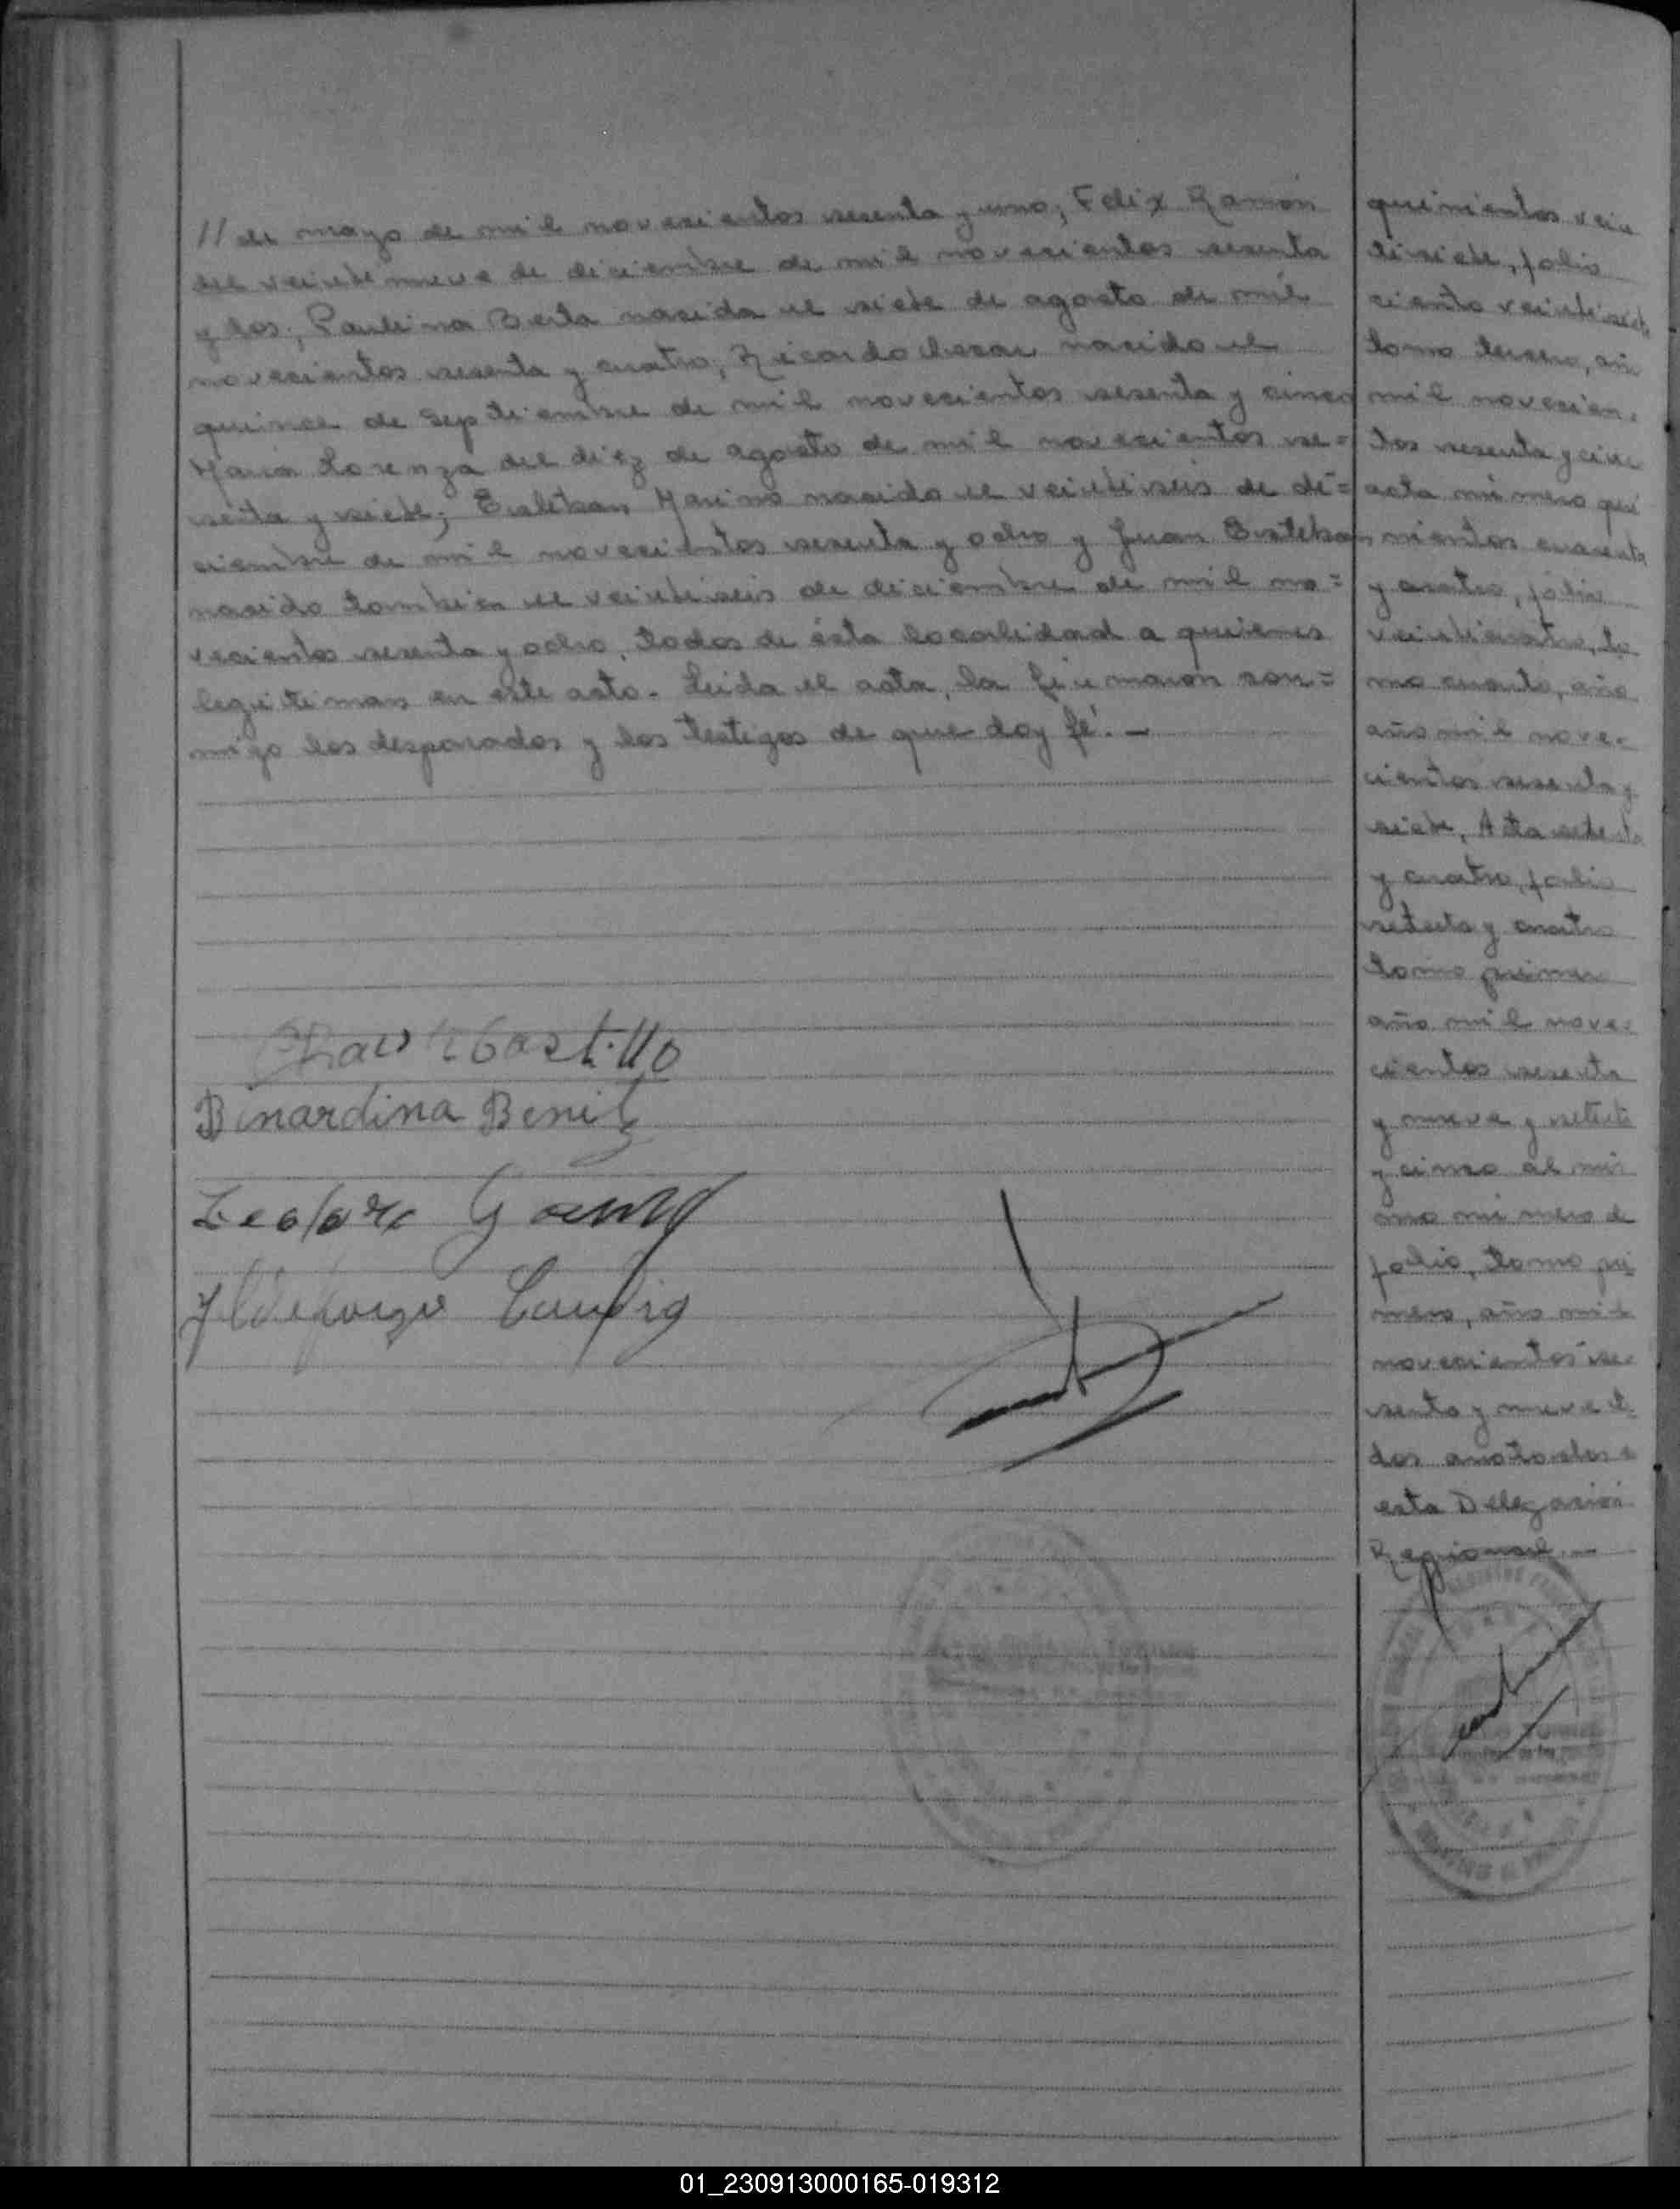 // de mayo de mil novecientos sesenta y uno; Felix Ramón
del veintinueve de diciembre de mil novecientos sesenta
y dos; Paulina Berta nacida el siete de agosto de mil
novecientos sesenta y cuatro; Ricardo Cesar nacido el
quince de septiembre de mil novecientos sesenta y cinco
Maria Lorenza del diez de agosto de mil novecientos se=
senta y siete; Esteban Marino nacido el veintiseis de di=
ciembre de mil novecientos sesenta y ocho y Juan Esteban
nacido tambien el veintiseis de diciembre de mil no=
vecientos sesenta y ocho, todos de ésta localidad a quienes
legitiman en este acto. Leida el acta, la firmaron con=
migo los desposados y los testigos de que doy fé. —
Castillo
Benardina Benit
Ildefonzo
quinientos vein
tisiete, folio
ciento veintisiete
tomo tercero, año
mil novecien=
tos sesenta y cinco
acta número qui
nientos cuarenta
y cuatro, folio
veinticuatro, to
mo cuarto, año
año mil nove=
cientos sesenta y
siete, Acta setenta
y cuatro, folio
setenta y cuatro
tomo primero
año mil nove=
cientos sesenta
y nueve y setenta
y cinco al mis
mo número de
folio, tomo pri
mero, año mil
novecientos se=
senta y nueve to
dos anotados e
esta Delegación
Regional.—
01_230913000165-019312